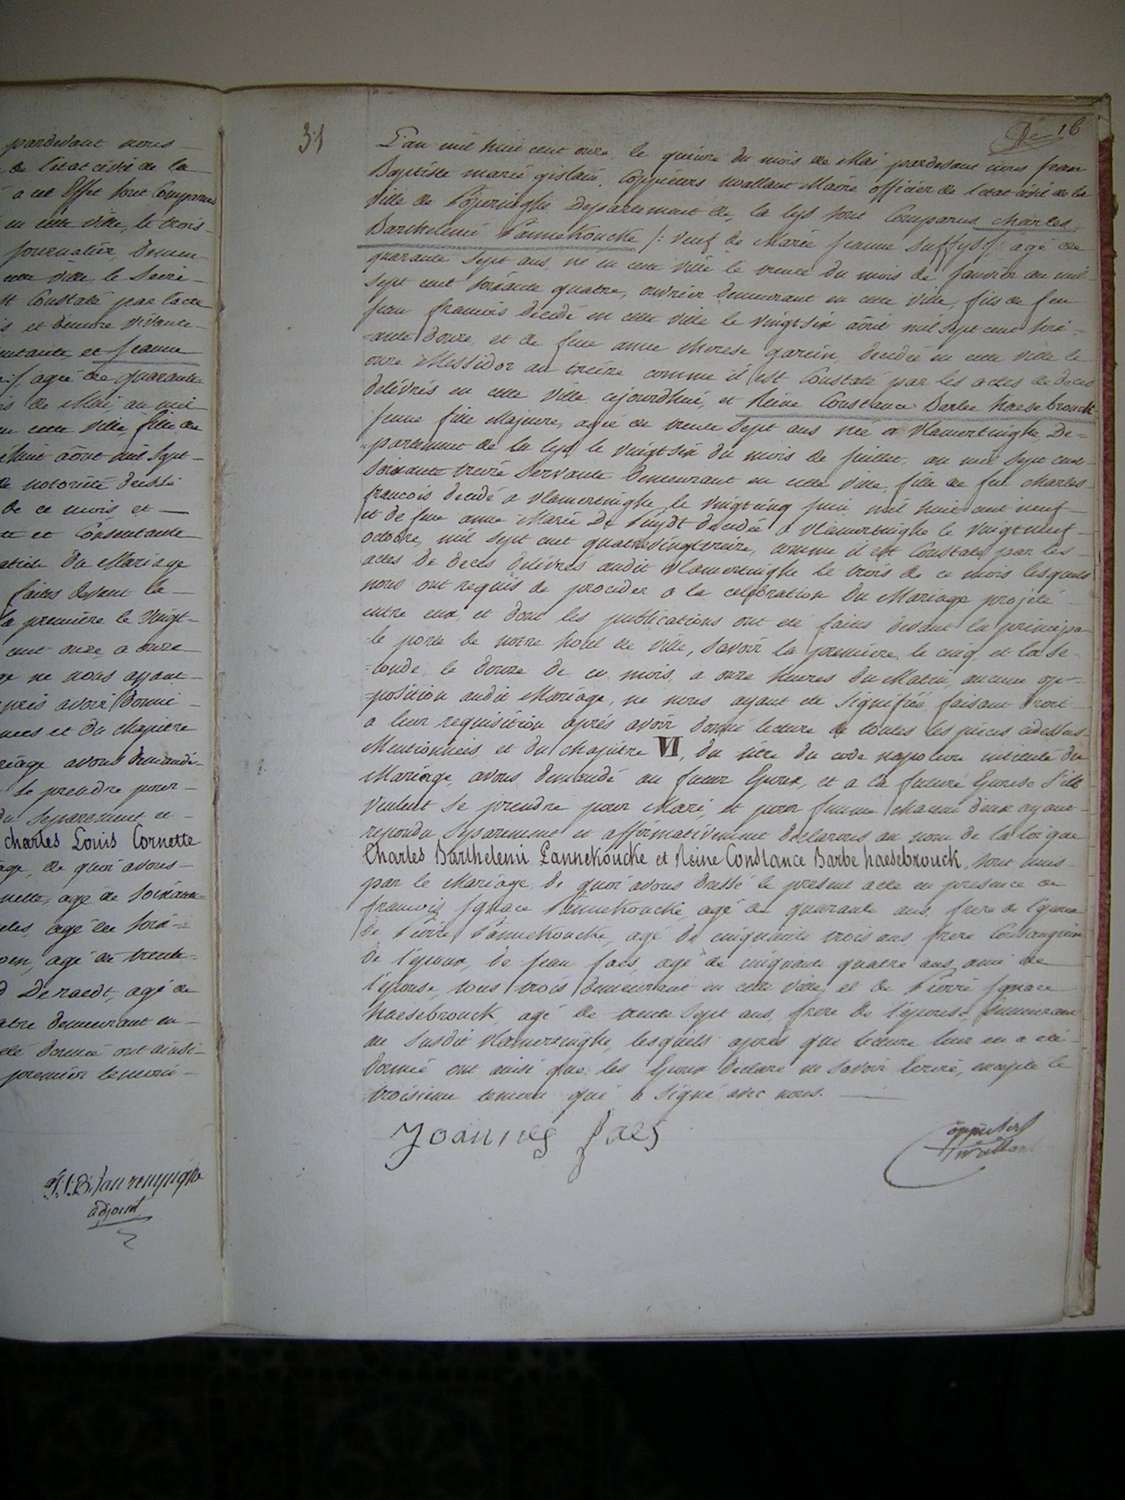 pardevant nous
de l'état civil de la
à cet Effet sont Comparus
en cette ville, le trois
journalier, demeu-
cette ville le Seize
Constaté par l'acte
et encore vivante
et Jeanne
agée de quarante
de Mai au mil
en cette ville fille de
huit août mil Sept
de notorieté
de ce mois et
et Consentante
du Mariage
faites devant la
la première le Vingt
cent onze a onze
ne nous ayant
après avoir donné
et du chapitre
avons demandé
Se prendre pour
Separement et
Charles Louis Cornette
de quoi avons
agé de Soixante
agé de
agé de trente
Denaedt, agé de
demeurant en
donné ont ainsi
premier temoin
adjoint
31
16
L'an mil huit cent onze le quinze du mois de Mai pardevant nous Jean
Baptiste marie gislain, Coppieters wallant Maire officier de l'état civil de la
Ville de Poperinghe Departement de la lys sont Comparus Charles
Barthelemi Pannekoucke /: veuf de Marie Jeanne Suffys :/ agé de
quarante Sept ans, né en cette ville le trente du mois de Janvier au mil
sept cent Soixante quatre, ouvrier demeurant en cette ville, fils de feu
Jean francois décédé en cette ville le Vingt six aôut mil sept cent soix-
ante douze, et de feue anne therese garein, decedée en cette ville le
onze Messidor an treize comme il est Constaté par les actes de deces
delivrés en cette ville cejourdhui, et Reine Constance Barbe haesebrouck
Jeune fille Majeure, agée de trente Sept ans née a Vlamertinghe De-
partement de la lys le Vingt six du mois de Juillet, au mil Sept cent
Soixante treize Servante demeurant en cette ville, fille de feu Charles
francois décédé a Vlamertinghe le Vingt cinq Juin mil huit cent neuf
et de feue anne Marie De Puydt decedée a Vlamertinghe le Vingt neuf
octobre, mil sept cent quatrevingt treize, comme il est Constaté par les
actes de deces delivrés audit Vlamertinghe le trois de ce mois lesquels
nous ont requis de proceder a la celebration du Mariage projeté
entre eux et dont les publications ont été faites devant la principa-
le porte de notre hotel de ville, Savoir la premiere le cinq et la Se-
conde le douze de ce mois, a onze heures du Matin, aucune op-
position audit Mariage, ne nous ayant été Signifiée faisant droit
a leur requisition après avoir donné lecture de toutes les pieces cidessus
Mentionnées et du chapitre VI, du titre du code napoleon intitulé du
Mariage, avons demandé au futur Epoux, et a la future Epouse S'ils
veulent Se prendre pour Mari, et pour femme chacun d'eux ayant
repondu Separement et affirmativement declarons au nom de la loi que
Charles Barthelemi Pannekoucke et Reine Constance Barbe haesebrouck, sont unis
par le Mariage, de quoi avons dressé le present acte en presence de
francois Ignace Pannekoucke agé de quarante ans, frere de l'epoux
de Pierre Pannekoucke, agé de cinquante trois ans frere Consanguin
de l'epoux, de Jean faes, agé de cinquante quatre ans ami de
l'epouse, tous trois demeurant en cette ville, et de Pierre Ignace
haesebrouck agé de trente Sept ans, frere de l'epouse demeurant
au susdit Vlamertinghe, lesquels après que lecture leur en a été
donnée ont ainsi que les Epoux declaré ne Savoir Ecrire, excepté le
troisieme temoin qui a Signé avec nous.
Joannes faes
Coppieters
wallant